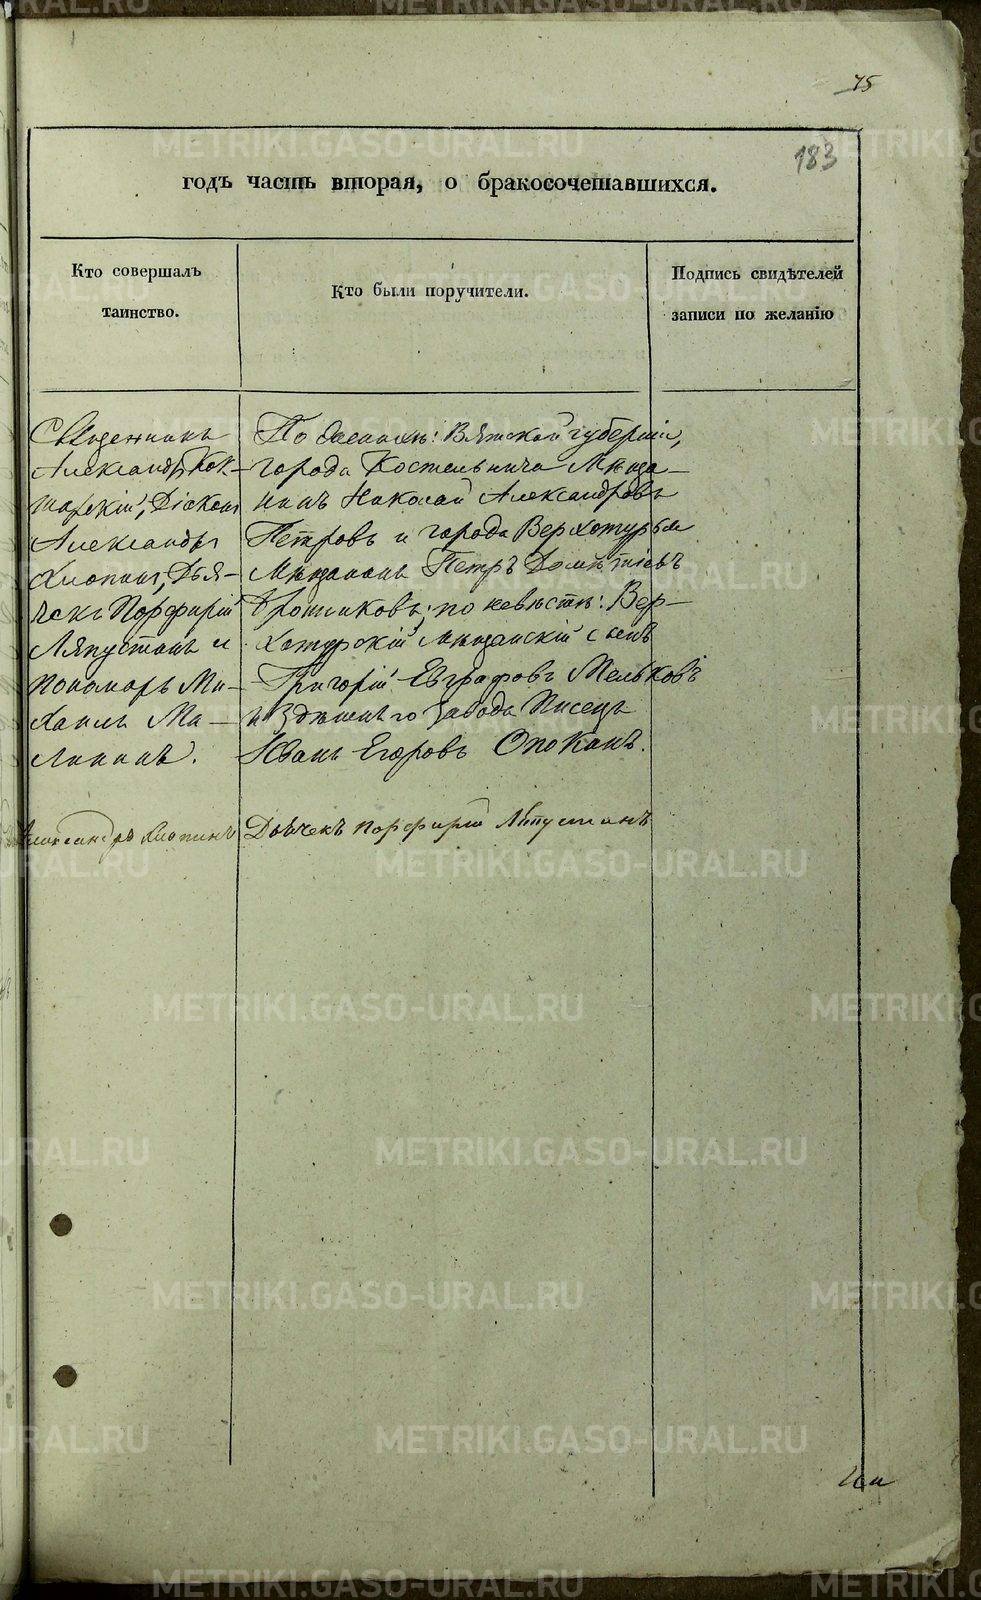 75
183
годъ часть вторая, о бракосочетавшихся.
Кто совершалъ
таинство.
Кто были поручители.
Подпись свидѣтелей
записи по желанію
Священникъ
Александръ Кок-
шарскій, Діаконъ
Александръ
Хлопинъ, Дья-
чекъ Порфирій
Ляпустинъ и
пономарь Ми-
хаилъ Ма-
лининъ.
По женихѣ: Вятской губерніи,
города Котельнича Мѣща-
нинъ Николай Александровъ
Петровъ и города Верхотурья
Мѣщанинъ Петръ Дометіевъ
по невѣстѣ: Вер-
хотурскій мѣщанскій сынъ
Григорій Евграфовъ Мельковъ
и Здѣшняго Завода Писецъ
Иванъ Егоровъ Опокинъ.
Александръ Хлопинъ Дьячекъ Порфирій Ляпустинъ
METRIKI.GASO-URAL.RU